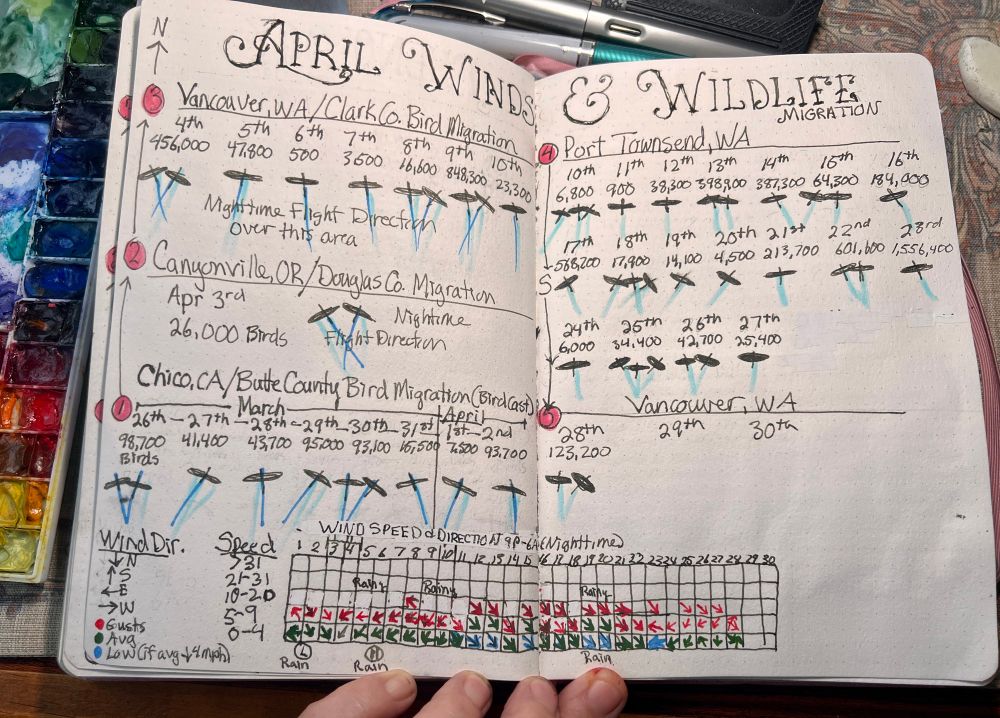 APRIL WINDS & WILDLIFE
MIGRATION
N
3 Vancouver, WA/Clark Co. Bird Migration
4th 5th 6th 7th 8th 9th 10th
456,000 47,800 500 3,500 16,600 848,300 23,300
Nighttime Flight Direction
over this area
2 Canyonville, OR/Douglas Co. Migration
Apr 3rd
26,000 Birds
Nightime
Flight Direction
Chico, CA/Butte County Bird Migration (BirdCast)
1 March April
26th - 27th - 28th - 29th - 30th - 31st 1st - 2nd
98,700 41,400 43,700 95,000 93,100 15,500 7,500 93,700
Birds
4 Port Townsend, WA
10th 11th 12th 13th 14th 15th 16th
6,800 900 38,300 398,900 387,300 64,300 184,000
17th 18th 19th 20th 21st 22nd 23rd
568,200 17,900 14,100 4,500 213,700 601,600 1,556,400
S
24th 25th 26th 27th
6,000 34,400 42,700 25,400
5 Vancouver, WA
28th 29th 30th
123,200
Wind Dir.
↓ N
↑ S
← E
→ W
Gusts
Avg
Low (if avg ↓4mph)
Speed
>31
21-31
10-20
5-9
0-4
WIND SPEED & DIRECTION AT 9P-6A (Nighttime)
1 2 3 4 5 6 7 8 9 10 11 12 13 14 15 16 17 18 19 20 21 22 23 24 25 26 27 28 29 30
Rainy Rainy Rainy
L H
Rain Rain Rain